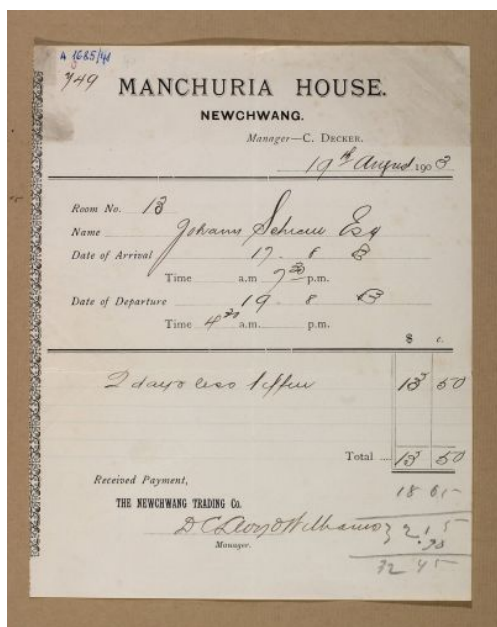 A 1685/41
749
MANCHURIA HOUSE.
NEWCHWANG.
Manager—C. DECKER.
19th August 1903
Room No. 13
Name Johann Esq
Date of Arrival 17 8 3
Time a.m 7 30 p.m.
Date of Departure 19 8 3
Time 4 30 a.m. p.m.
$ c.
2 days less tiffin 13 50
Total .... 13 50
Received Payment,
18 65
THE NEWCHWANG TRADING Co.
Manager.
32 45